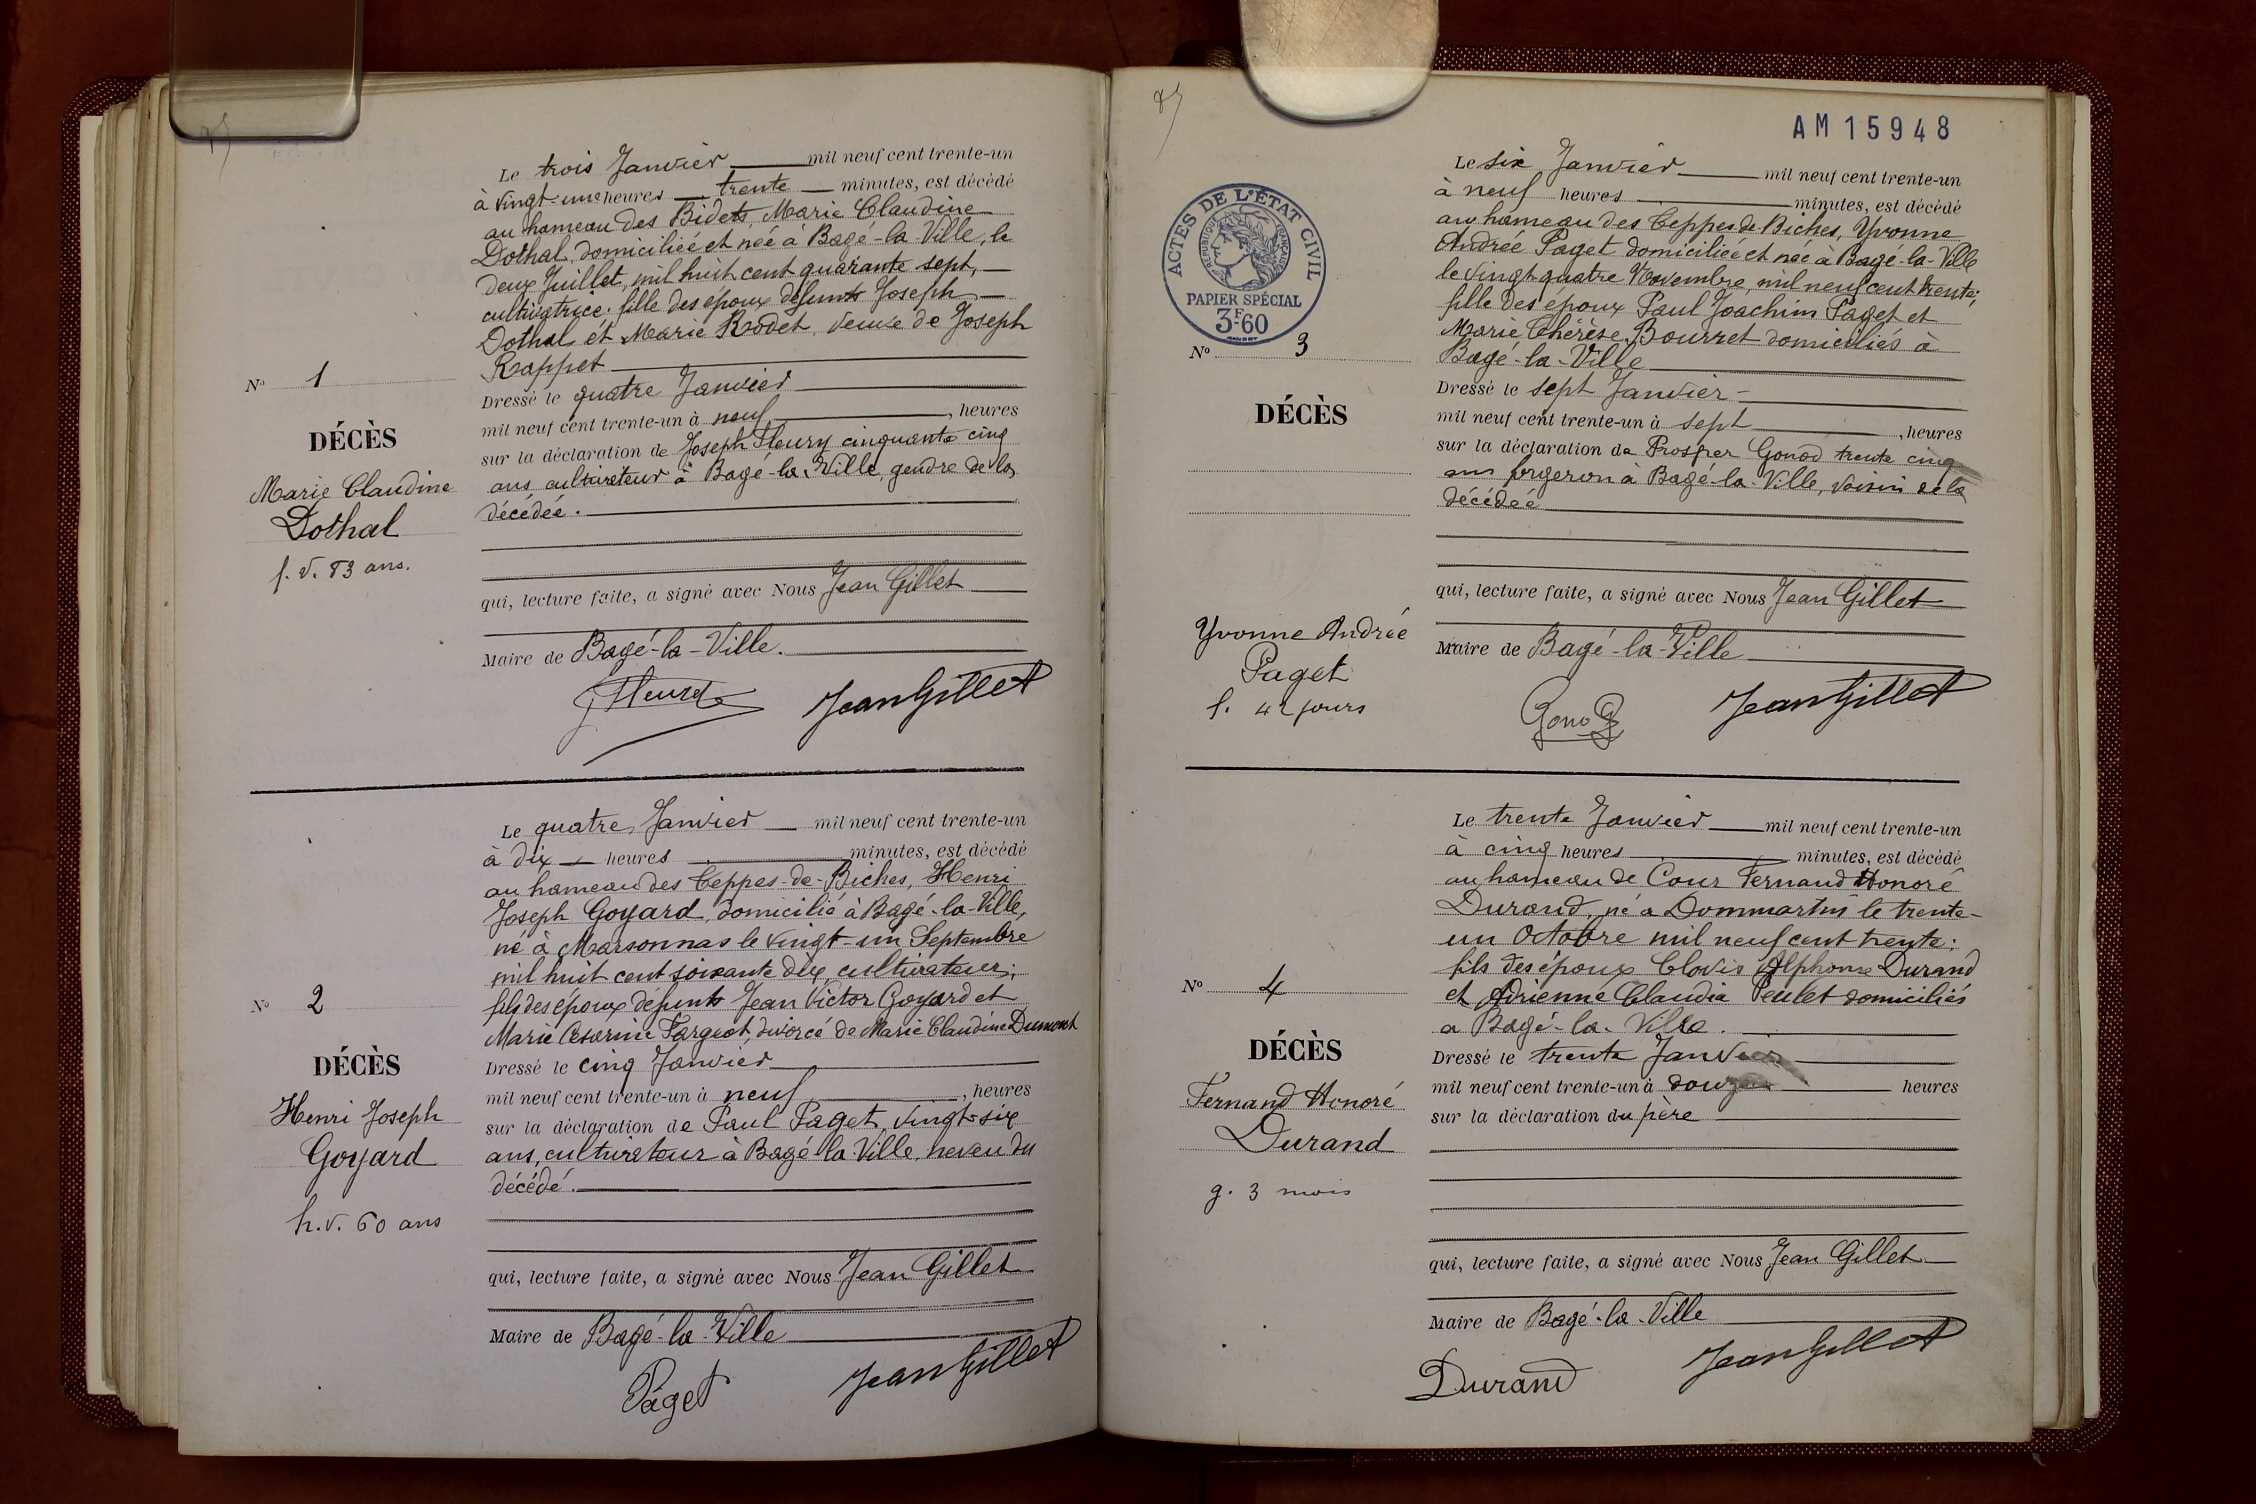 Le trois Janvier mil neuf cent trente-un
à vingt-une heures trente minutes, est décédé
au hameau des Bidets, Marie Claudine
Dothal, domiciliée et née à Bagé-la-Ville, le
deux Juillet, mil huit cent quarante sept,
cultivatrice, fille des époux défunts Joseph
Dothal et Marie Rodet, veuve de Joseph
Rappet
Nº 1
Dressé le quatre Janvier
mil neuf cent trente-un à neuf, heures
DÉCÈS
sur la déclaration de Joseph Fleury cinquante cinq
Marie Claudine
ans cultivateur à Bagé-la-Ville, gendre de la
Dothal
décédée.
f. v. 83 ans.
qui, lecture faite, a signé avec Nous Jean Gillet
Maire de Bagé-la-Ville.
Jean Gillet
Le quatre Janvier mil neuf cent trente-un
à dix heures minutes, est décédé
au hameau des Teppes-de-Biches, Henri
Joseph Goyard, domicilié à Bagé-la-Ville,
né à Marsonnas le vingt-un Septembre
mil huit cent soixante dix, cultivateur;
Nº 2
fils des époux défunts Jean Victor Goyard et
Marie Césarine Fargeot, divorcé de Marie Claudine Dumont
DÉCÈS
Dressé le cinq Janvier
mil neuf cent trente-un à neuf, heures
Henri Joseph
sur la déclaration de Paul Paget, vingt-six
Goyard
ans, cultivateur à Bagé-la-Ville, neveu du
décédé.
h. v. 60 ans
qui, lecture faite, a signé avec Nous Jean Gillet
Maire de Bagé-la-Ville
Paget Jean Gillet
87
AM 15948
ACTES DE L'ÉTAT CIVIL
RÉPUBLIQUE FRANÇAISE
PAPIER SPÉCIAL
3F60
Le six Janvier mil neuf cent trente-un
à neuf heures minutes, est décédé
au hameau des Teppes de Biches, Yvonne
Andrée Paget domiciliée et née à Bagé-la-Ville
le vingt-quatre Novembre, mil neuf cent trente;
fille des époux Paul Joachim Paget et
Marie Thérèse Bourret domiciliés à
Nº 3
Bagé-la-Ville
Dressé le sept Janvier
DÉCÈS
mil neuf cent trente-un à sept, heures
sur la déclaration de Prosper Gonod trente cinq
ans forgeron à Bagé-la-Ville, voisin de la
décédée
qui, lecture faite, a signé avec Nous Jean Gillet
Yvonne Andrée
Maire de Bagé-la-Ville
Paget
f. 42 jours
Gonod Jean Gillet
Le trente Janvier mil neuf cent trente-un
à cinq heures minutes, est décédé
au hameau de Cour Fernand Honoré
Durand, né à Dommartin le trente-
un Octobre mil neuf cent trente;
fils des époux Clovis Alphonse Durand
Nº 4
et Adrienne Claudia Peulet domiciliés
à Bagé-la-Ville.
DÉCÈS
Dressé le trente Janvier
mil neuf cent trente-un à douze heures
Fernand Honoré
sur la déclaration du père
Durand
g. 3 mois
qui, lecture faite, a signé avec Nous Jean Gillet
Maire de Bagé-la-Ville
Durand Jean Gillet